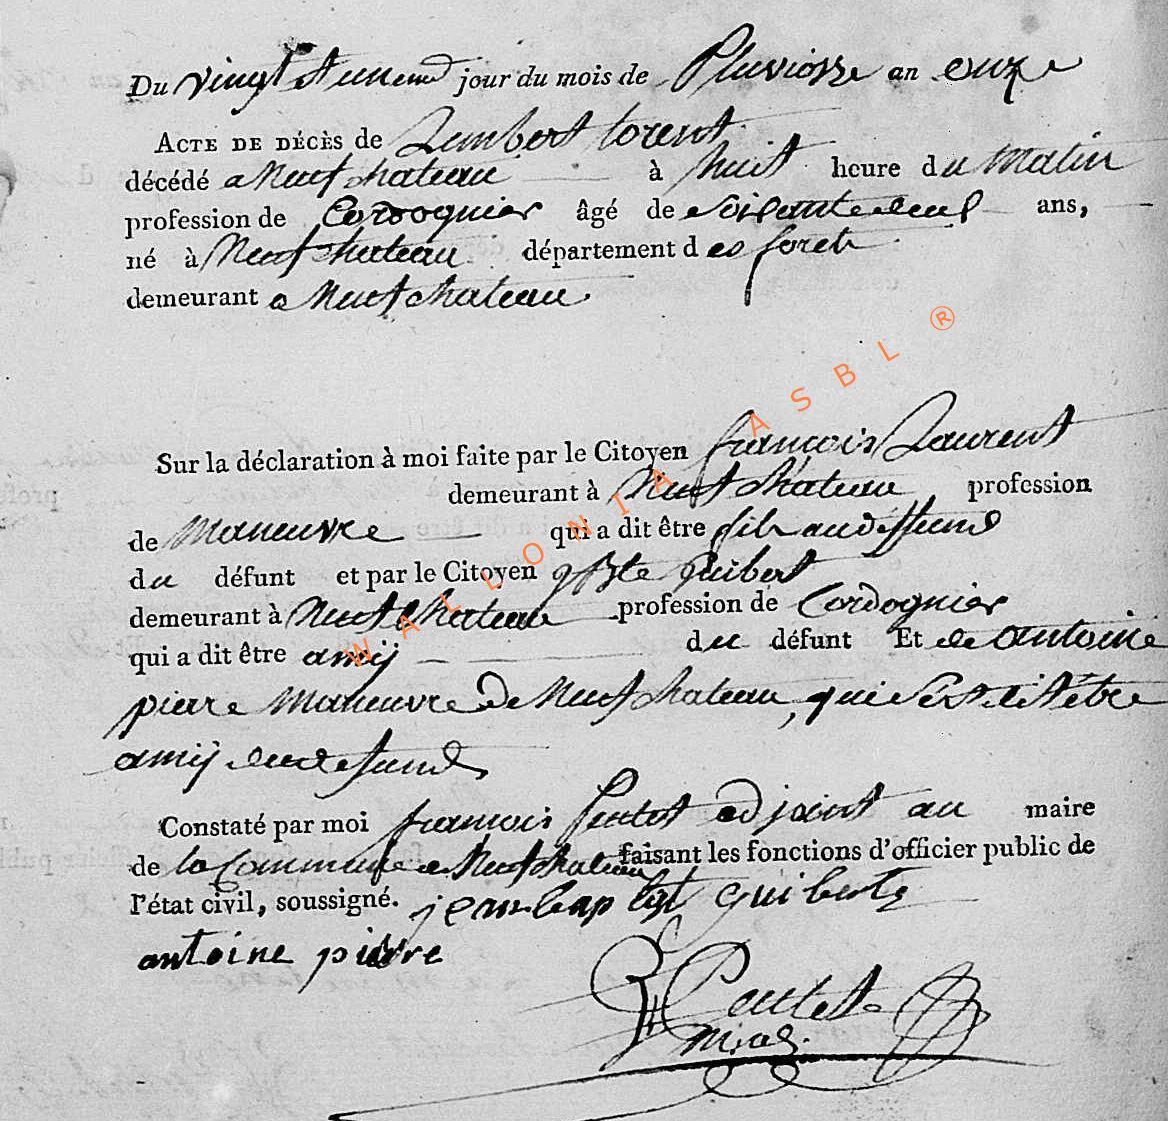 Du vingt et uneme jour du mois de Pluviosse an onze
ACTE DE DÉCÈS de Lambert lorent
décédé a Neufchateau à huit heure du Matin
profession de Cordognier âgé de soisante deux ans,
né à Neufchateau département des foret
demeurant a Neufchateau.
Sur la déclaration à moi faite par le Citoyen françois Laurent
demeurant à Neufchateau, profession
de Maneuvre qui a dit être fils audessund
du défunt et par le Citoyen jBte guibert
demeurant à Neufchateau profession de Cordognier
qui a dit être amij du défunt Et de antoine
pierre Maneuvre De Neufchateau, qui sest dit etre
amij du defund
Constaté par moi françois Pentet adjoint au maire
de la Commune de Neufchateau faisant les fonctions d'officier public de
l'état civil, soussigné. jean bap tist guiberte
antoine pierre
WALLONIA ASBL ®